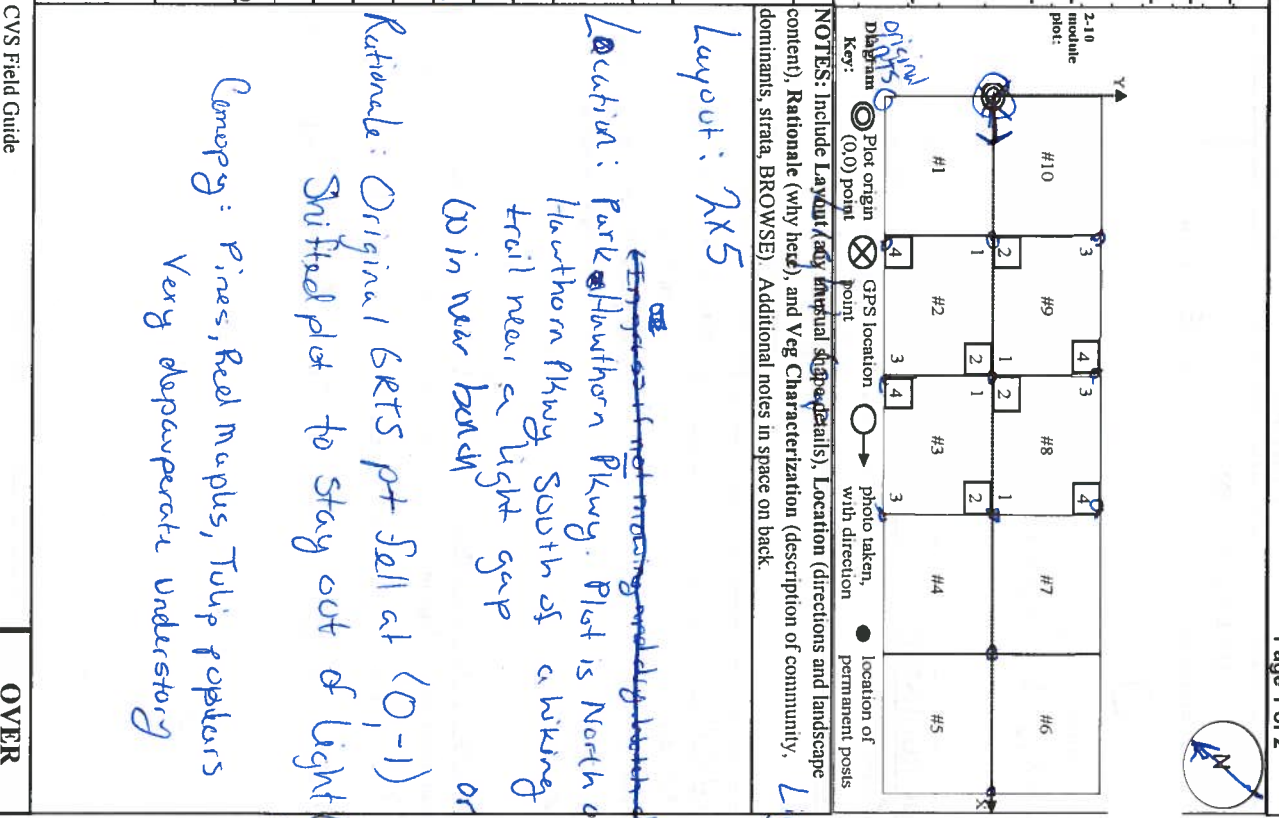 Page 1 of 2
N
2-10
module
plot:
Y
#10 #9 #8 #7 #6
3 4 3 4
2 1 2 1
1 2 1 2
4 3 4 3
#1 #2 #3 #4 #5
X
original
Diagram
Key:
Plot origin
(0,0) point
GPS location
point
photo taken,
with direction
location of
permanent posts
NOTES: Include Layout (any unusual shape/details), Location (directions and landscape
content), Rationale (why here), and Veg Characterization (description of community,
dominants, strata, BROWSE). Additional notes in space on back.
Layout: 2x5
Location: Park Hawthorn Pkwy. Plot is North o
Hawthorn Pkwy South of a hiking
trail near a light gap
in near bench
or
Rationale: Original GRTS pt fell at (0,-1)
Shifted plot to stay out of light
Canopy: Pines, Red Maples, Tulip poplars
Very depauperate understory
CVS Field Guide
OVER